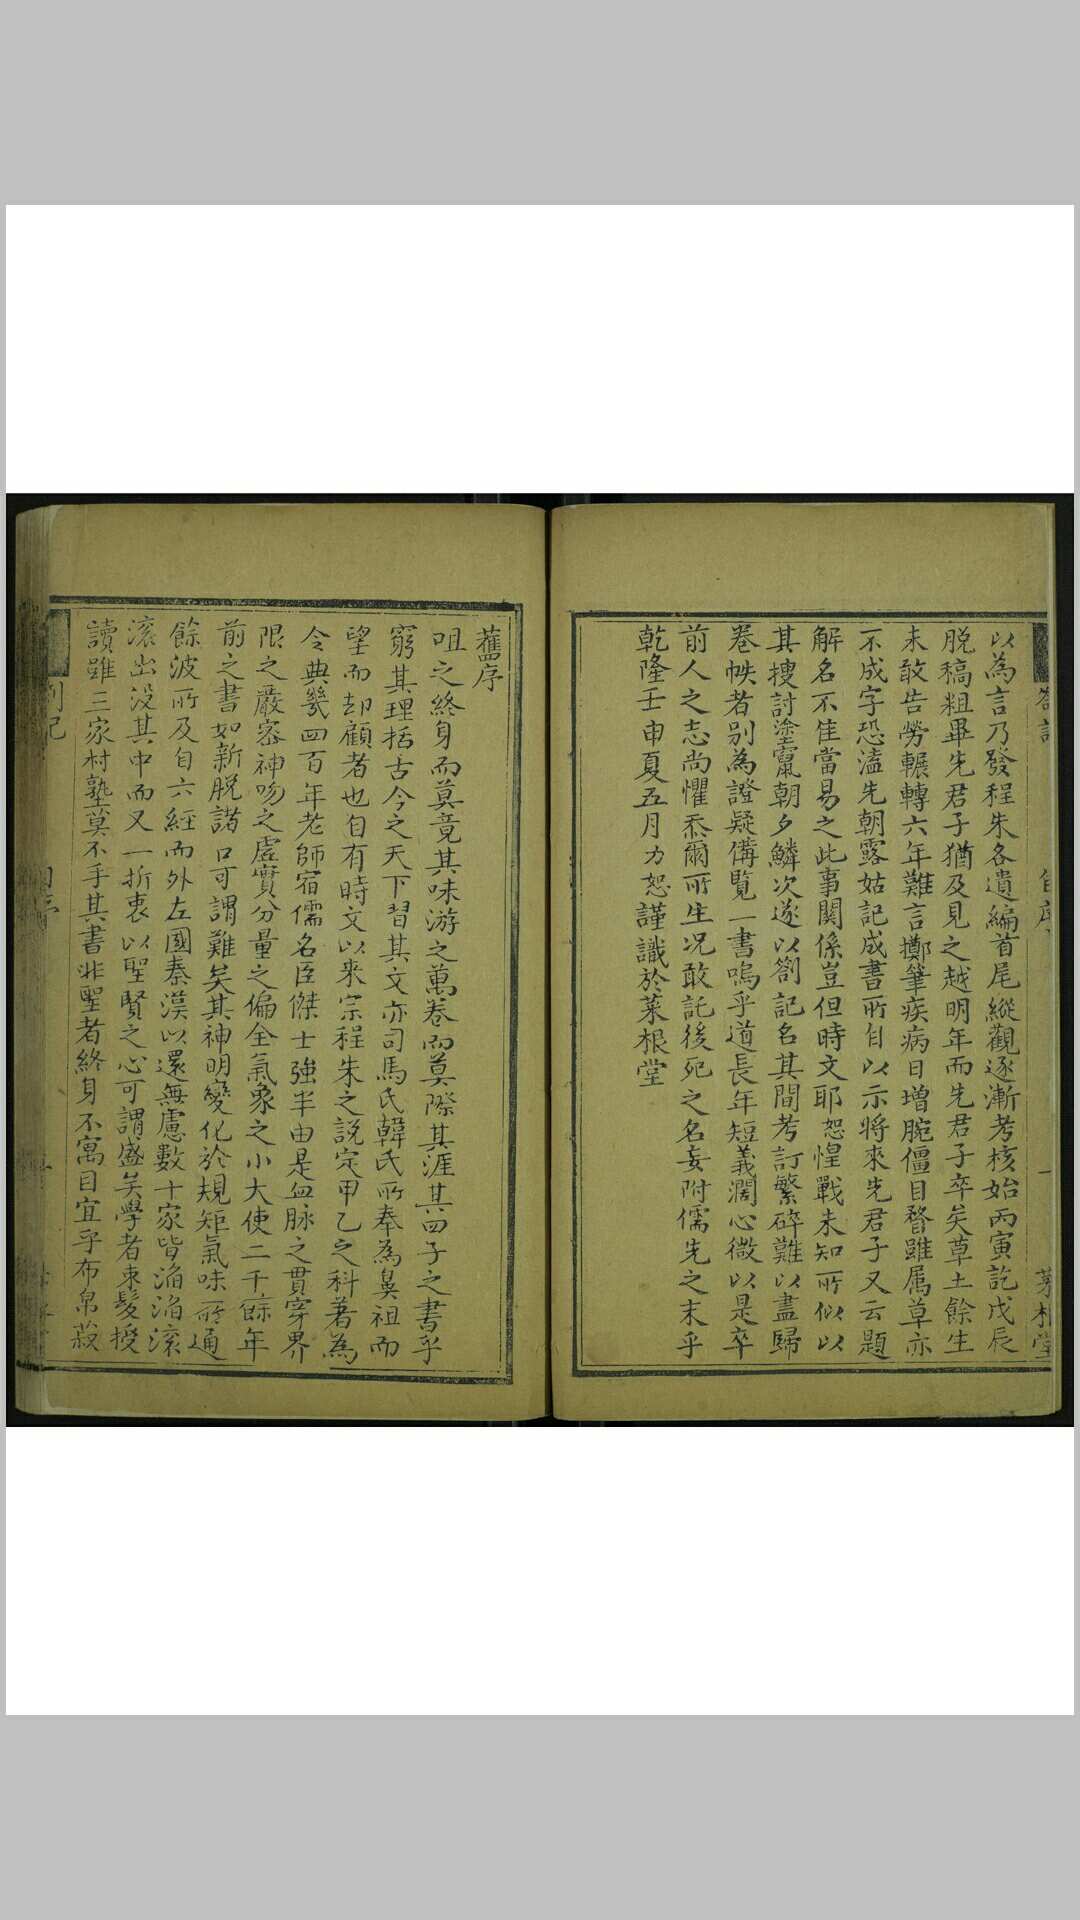 以為言乃發程朱各遺編首尾縱觀逐漸考核始丙寅訖戊辰
脫稿粗畢先君子猶及見之越明年而先君子卒矣草土餘生
未敢告勞輾轉六年難言擲筆疾病日增腕僵目瞀雖属草亦
不成字恐溘先朝露姑記成書所自以示將來先君子又云題
解名不佳當易之此事關係豈但時文耶恕惶戰未知所似以
其搜討塗竄朝夕鱗次遂以劄記名其間考訂繁碎難以盡歸
卷帙者别為證疑備覽一書嗚乎道長年短義濶心微以是卒
前人之志尚懼忝爾所生况敢託後死之名妄附儒先之末乎
乾隆壬申夏五月力恕謹識於菜根堂
舊序
咀之終身而莫竟其味游之萬卷而莫際其涯其四子之書乎
窮其理括古今之天下習其文亦司馬氏韓氏所奉為鼻祖而
望而却顧者也自有時文以來宗程朱之說定甲乙之科著為
令典幾四百年老師宿儒名臣傑士強半由是血脉之貫穿界
限之嚴密神吻之虛實分量之偏全氣象之小大使二千餘年
前之書如新脫諸口可謂難矣其神明變化於規矩氣味所通
餘波所及自六經而外左國秦漢以還無慮數十家皆淊淊滾
滾出没其中而又一折衷以聖賢之心可謂盛矣學者束髮授
讀雖三家村塾莫不手其書非聖者終身不寓目宜乎布帛菽
劄記